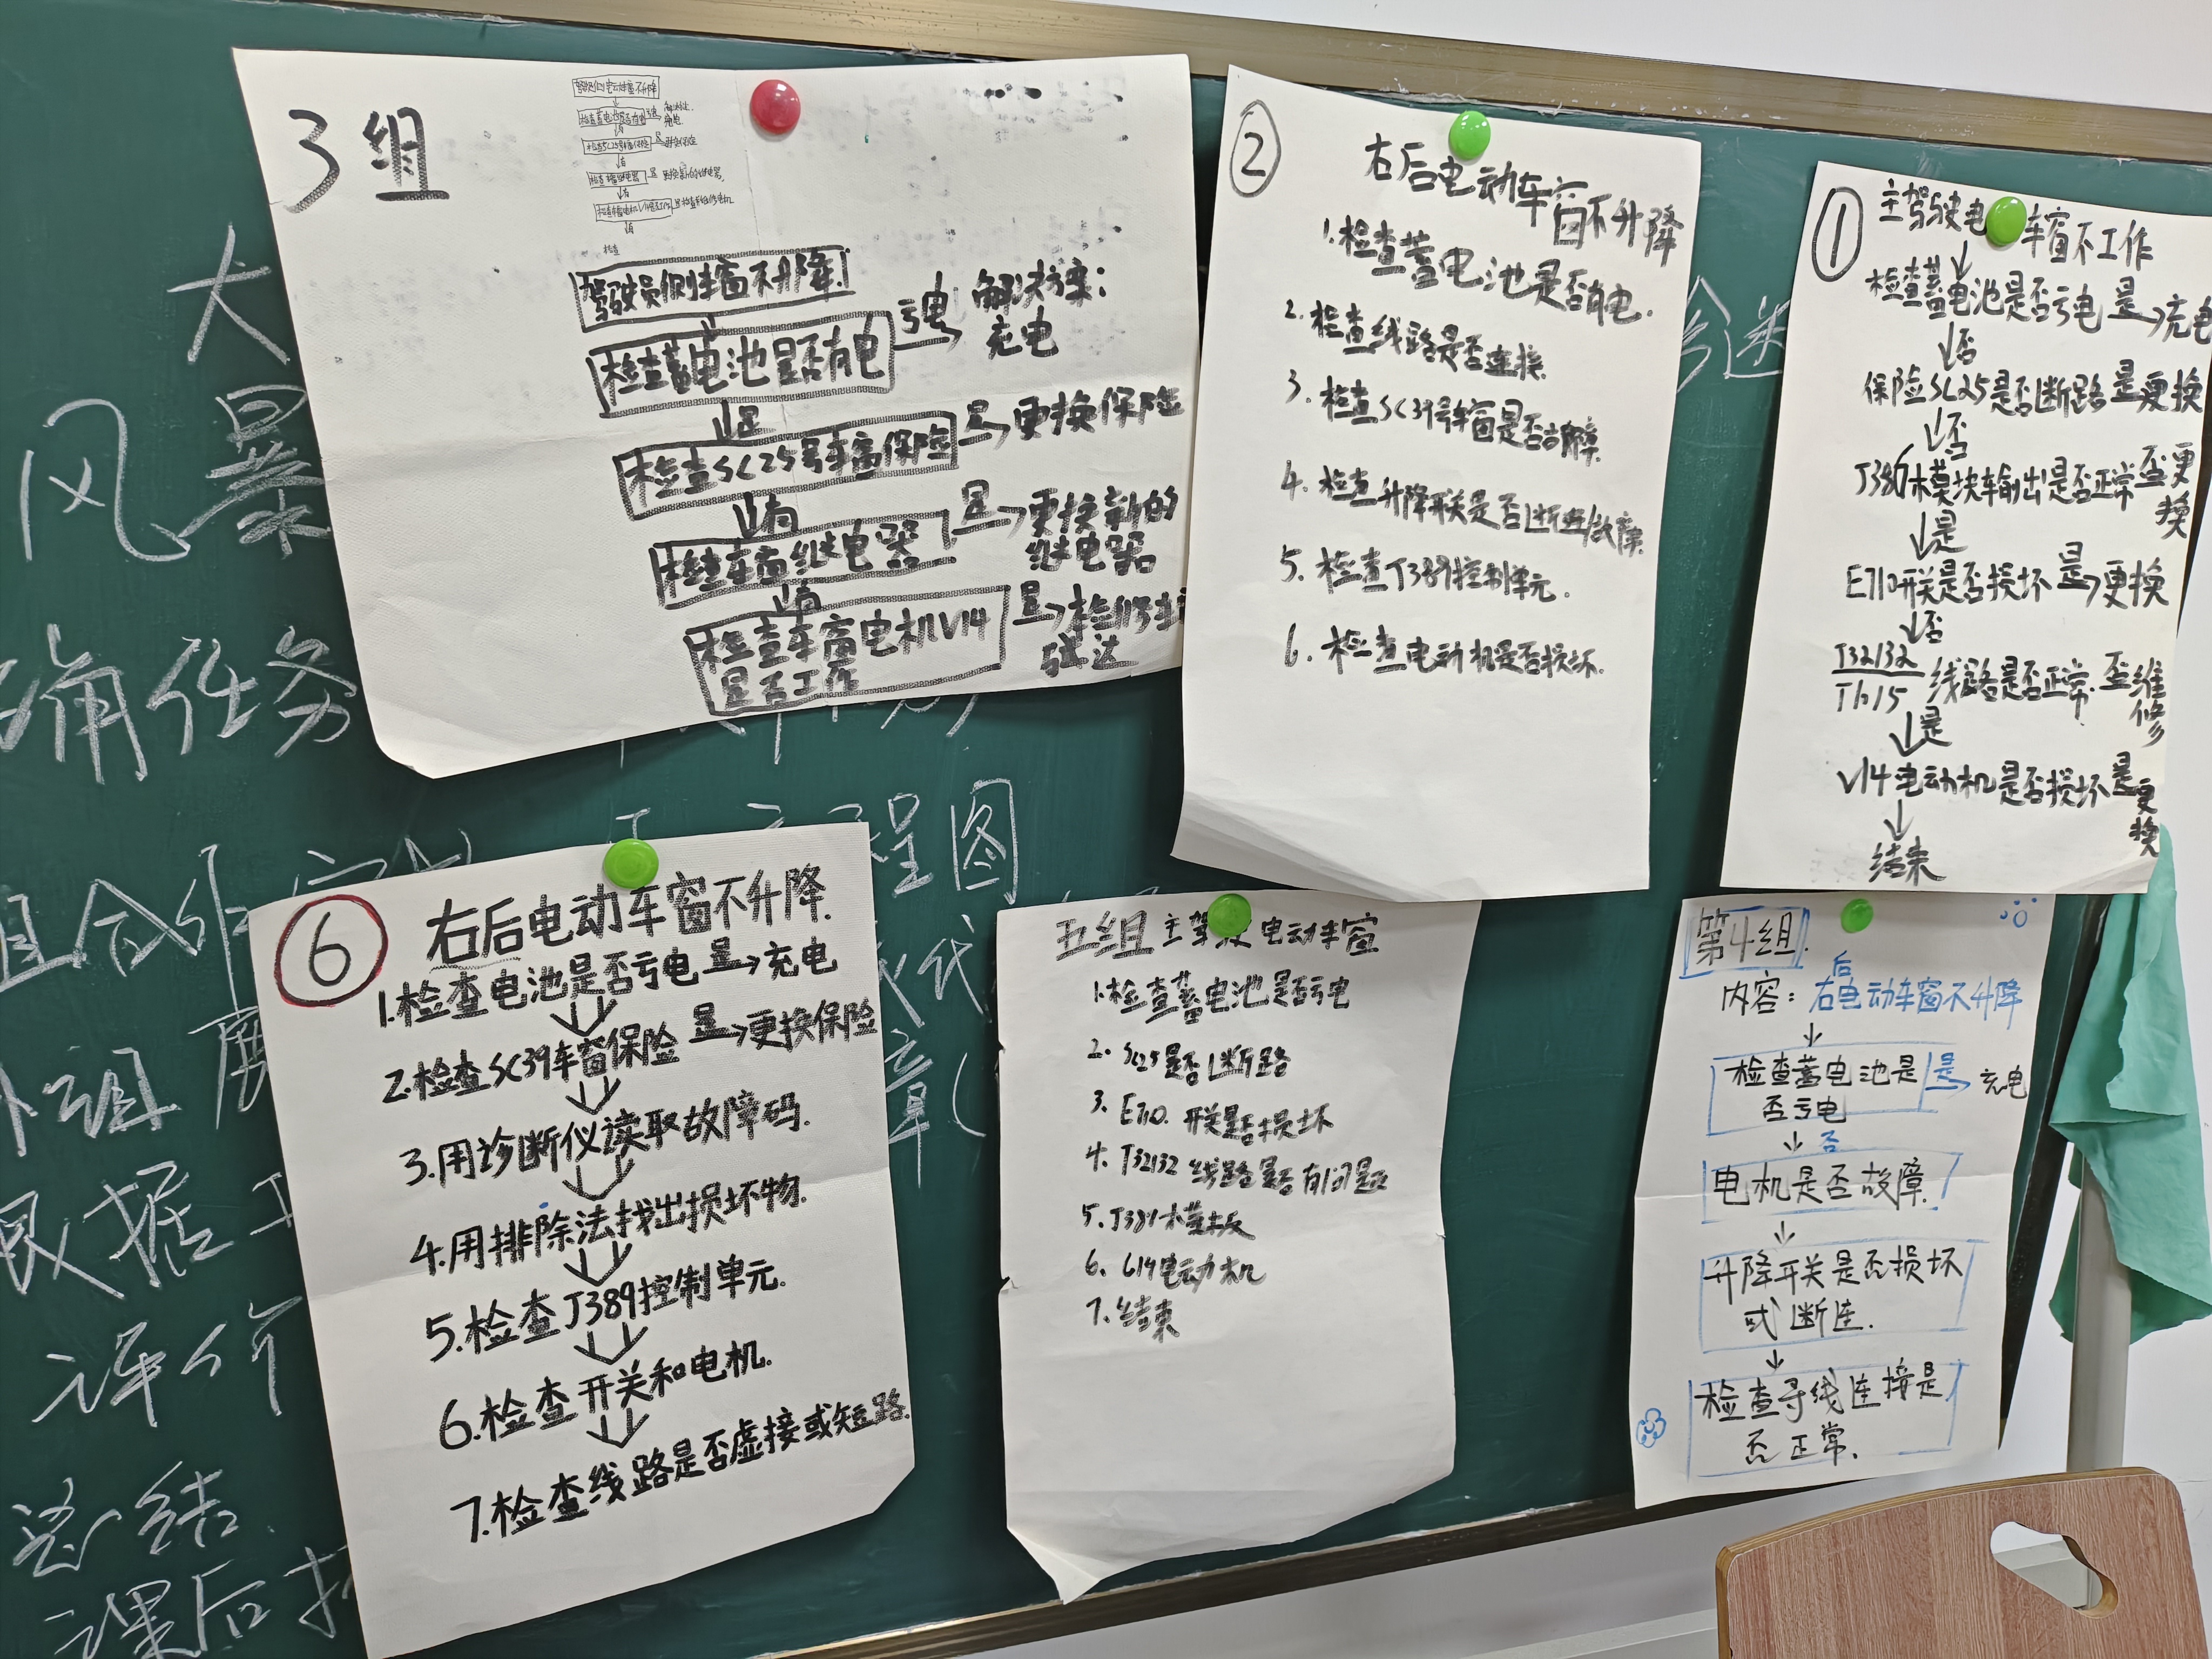 3组
驾驶员侧车窗不升降.
检查蓄电池是否有电 亏电→ 解决方案：充电
↓是
检查SC25号车窗保险 是→ 更换保险
↓有
检查车窗继电器 是→ 更换新的继电器
↓有
检查车窗电机V14是否工作 是→
②
右后电动车窗不升降
1.检查蓄电池是否有电.
2.检查线路是否连接.
3.检查SC39号车窗是否故障.
4.检查升降开关是否断连/故障.
5.检查J389控制单元.
6.检查电动机是否损坏.
①
主驾驶电 车窗不工作
↓
检查蓄电池是否亏电 是→充电
↓否
保险SC25是否断路 是 更换
↓否
J386模块输出是否正常 否 更换
↓是
E710开关是否损坏 是→更换
↓否
T32/32
T6/5 线路是否正常. 否 维修
↓是
V14电动机是否损坏 是 更换
↓
结束
⑥
右后电动车窗不升降.
1.检查电池是否亏电 是→充电
2.检查SC39车窗保险 是→更换保险
3.用诊断仪读取故障码.
4.用排除法找出损坏物.
5.检查J389控制单元.
6.检查开关和电机.
7.检查线路是否虚接或短路.
五组 主驾 电动车窗
1.检查蓄电池是否亏电
2.SC25是否断路
3.E710.开关是否损坏
4.T32/32 线路是否有问题
5.J389
6.G14电动机
7.结束
第4组.
内容：右后电动车窗不升降
↓
检查蓄电池是否亏电 是→ 充电
↓否
电机是否故障.
↓
升降开关是否损坏或断连.
↓
检查导线连接是否正常.
大
风暴
任务
程图
根据
评价
总结.
课后